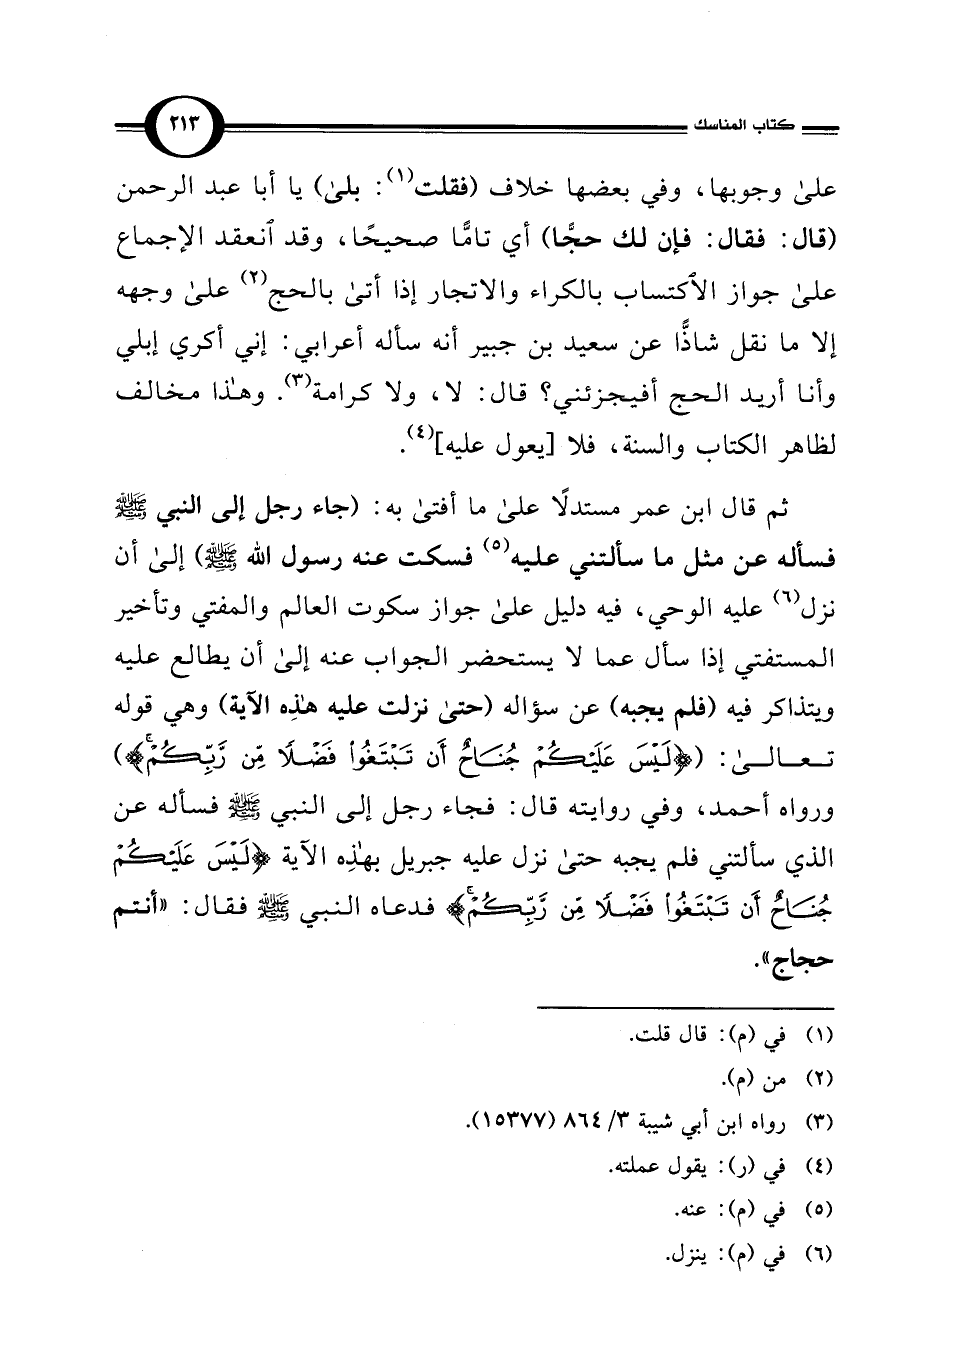 كتاب المناسك
٢١٣
علىٰ وجوبها، وفي بعضها خلاف (فقلت(١): بلىٰ) يا أبا عبد الرحمن
(قال: فقال: فإن لك حجًّا) أي تامًّا صحيحًا، وقد ٱنعقد الإجماع
علىٰ جواز الأكتساب بالكراء والاتجار إذا أتىٰ بالحج(٢) علىٰ وجهه
إلا ما نقل شاذًّا عن سعيد بن جبير أنه سأله أعرابي: إني أكري إبلي
وأنا أريد الحج أفيجزئني؟ قال: لا، ولا كرامة(٣). وهٰذا مخالف
لظاهر الكتاب والسنة، فلا [يعول عليه](٤).
ثم قال ابن عمر مستدلًا علىٰ ما أفتىٰ به: (جاء رجل إلى النبي ﷺ
فسأله عن مثل ما سألتني عليه(٥) فسكت عنه رسول الله ﷺ) إلىٰ أن
نزل(٦) عليه الوحي، فيه دليل علىٰ جواز سكوت العالم والمفتي وتأخير
المستفتي إذا سأل عما لا يستحضر الجواب عنه إلىٰ أن يطالع عليه
ويتذاكر فيه (فلم يجبه) عن سؤاله (حتىٰ نزلت عليه هٰذِه الآية) وهي قوله
تعالىٰ: (﴿لَيْسَ عَلَيْكُمْ جُنَاحٌ أَن تَبْتَغُوا۟ فَضْلًا مِّن رَّبِّكُمْ ۚ﴾)
ورواه أحمد، وفي روايته قال: فجاء رجل إلى النبي ﷺ فسأله عن
الذي سألتني فلم يجبه حتىٰ نزل عليه جبريل بهٰذِه الآية ﴿لَيْسَ عَلَيْكُمْ
جُنَاحٌ أَن تَبْتَغُوا۟ فَضْلًا مِّن رَّبِّكُمْ ۚ﴾ فدعاه النبي ﷺ فقال: «أنتم
حجاج».
(١) في (م): قال قلت.
(٢) من (م).
(٣) رواه ابن أبي شيبة ٣/ ٨٦٤ (١٥٣٧٧).
(٤) في (ر): يقول عملته.
(٥) في (م): عنه.
(٦) في (م): ينزل.